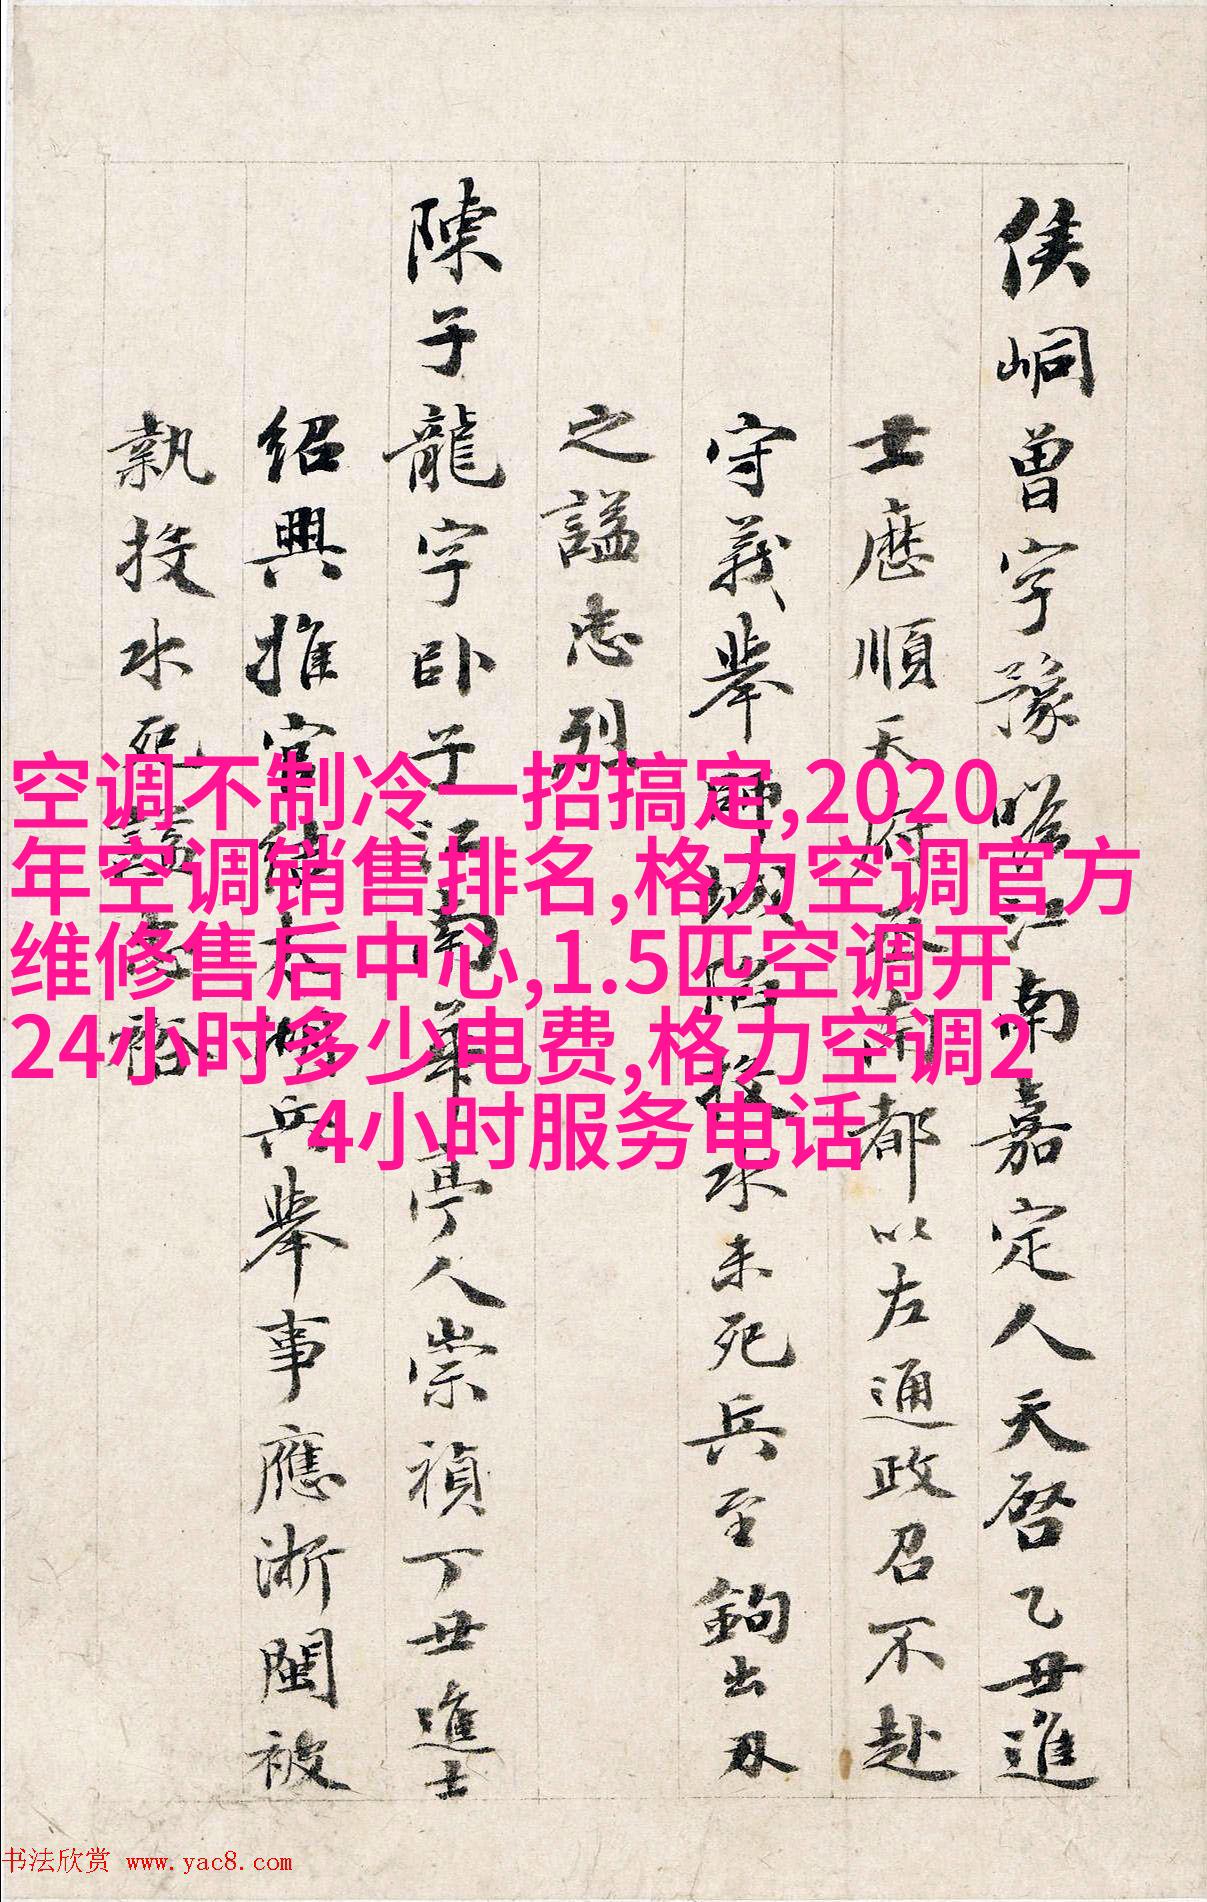 侯峒曾字豫瞻江南嘉定人天啓乙丑進
士歷順天府丞南都以左通政召不赴
守義舉師城陷投水未死兵至鉤出刃
之謚忠烈
陳子龍字卧子江南華亭人崇禎丁丑進士
紹興推官結太湖兵舉事應浙閩被
執投水死謚忠裕
空调不制冷一招搞定,2020
年空调销售排名,格力空调官方
维修售后中心,1.5匹空调开
24小时多少电费,格力空调2
4小时服务电话
书法欣赏 www.yac8.com